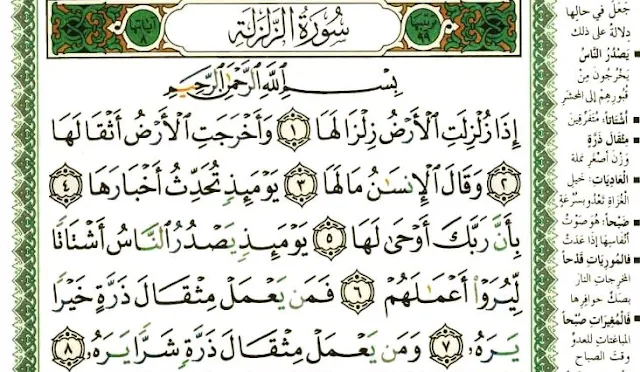 سُورَةُ الزَّلْزَلَةِ
بِسْمِ اللَّهِ الرَّحْمَٰنِ الرَّحِيمِ
إِذَا زُلْزِلَتِ الْأَرْضُ زِلْزَالَهَا ١ وَأَخْرَجَتِ الْأَرْضُ أَثْقَالَهَا
٢ وَقَالَ الْإِنسَٰنُ مَا لَهَا ٣ يَوْمَئِذٍ تُحَدِّثُ أَخْبَارَهَا ٤
بِأَنَّ رَبَّكَ أَوْحَىٰ لَهَا ٥ يَوْمَئِذٍ يَصْدُرُ النَّاسُ أَشْتَاتًا
لِّيُرَوْا أَعْمَٰلَهُمْ ٦ فَمَن يَعْمَلْ مِثْقَالَ ذَرَّةٍ خَيْرًا
يَرَهُۥ ٧ وَمَن يَعْمَلْ مِثْقَالَ ذَرَّةٍ شَرًّا يَرَهُۥ ٨
جَعَلَ في حالِها
دلالةً على ذلك
يَصْدُرُ النَّاسُ
يَخْرُجُونَ مِنْ
قُبُورِهِمْ إلى المحشَرِ
أَشْتَاتًا: مُتَفَرِّقِينَ
مِثْقَالَ ذَرَّةٍ
وَزْنَ أَصْغَرِ نملة
الْعَادِيَاتِ: خَيلِ
الغُزَاةِ تَعْدُو بسُرْعَةٍ
ضَبْحًا: هُوَ صَوْتُ
أنفاسِها إذا عَدَتْ
فَالْمُورِيَاتِ قَدْحًا
المخرِجاتِ النارَ
بِصَكِّ حوافِرِها
فَالْمُغِيرَاتِ صُبْحًا
المباغتاتِ للعدوِّ
وقتَ الصباحِ